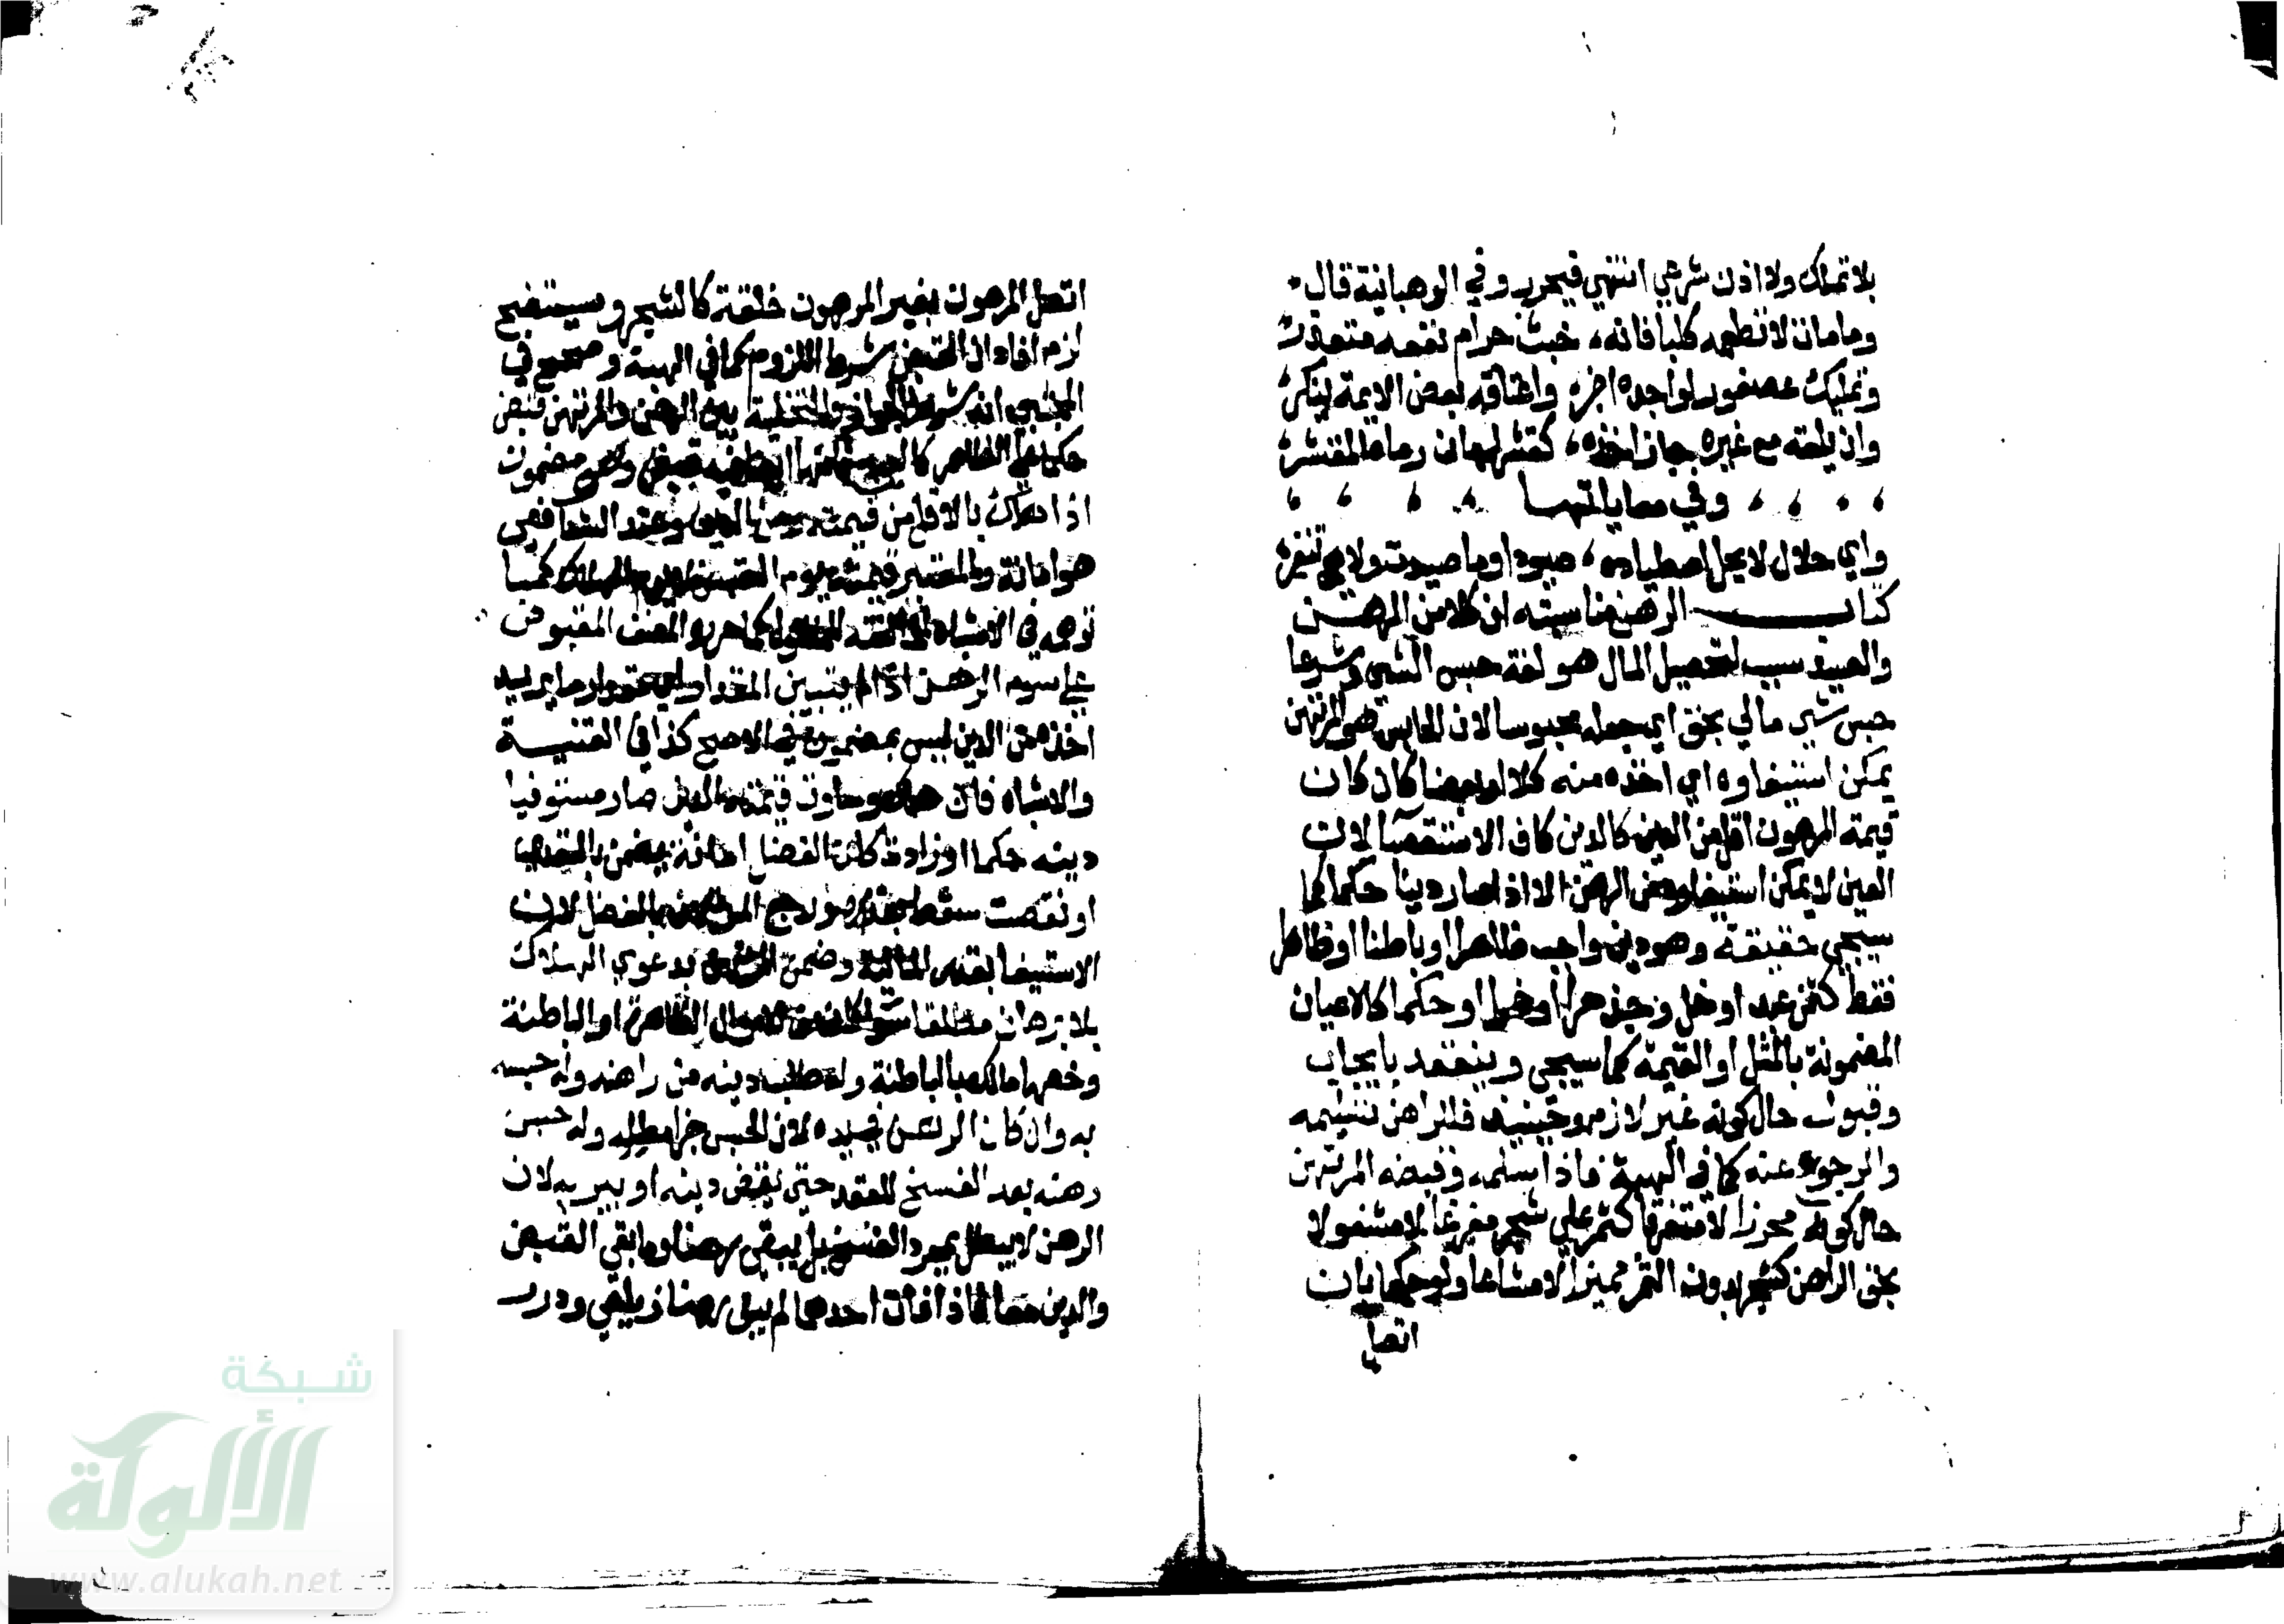 بلا تملك ولا اذن شرعي انتهي فيحرر وفي الوهبانية قال
وما مات لا تطعمه كلبا فانه خبث حرام نفعه متعذر
وتمليك عصفور لواجده اجز واعتاقه بعض الايمة ينكر
وان يلقه مع غيره جاز اخذه كقشر لرمان رماه المقشر
وفي معاياتها
واي حلال لا يحل اصطياده صيودا وما صيدت ولا هي تنفر
كتاب الرهن مناسبته ان كلا من الرهن
والصيد سبب لتحصيل المال هو لغة حبس الشي وشرعا
حبس شي مالي بحق اي جعله محبوسا لان الحابس هو المرتهن
يمكن استيفاوه اي اخذه منه كلا او بعضا كان كان
قيمة المرهون اقل من الدين كالدين كاف الاستقصا لان
العين لا يمكن استيفاوها من الرهن الا اذا صار دينا حكما كما
سيجي حقيقة وهو دين واجب ظاهرا وباطنا او ظاهرا
فقط كثمن عبد او خل وجد حرا او خمرا او حكما كالاعيان
المضمونة بالمثل او القيمة كما سيجي وينعقد بايجاب
وقبول حال كونه غير لازم وحينيذ فللراهن تسليمه
والرجوع عنه كما في الهبة فاذا سلمه وقبضه المرتهن
حال كونه محوزا لا متفرقا كثمر علي شجر مفرغا لا مشغولا
بحق الراهن كشجر بدون الثمر مميزا لا مشاعا ولو حكما بان
اتصل
اتصل المرهون بغير المرهون خلقة كالشجر وسيتضح
لزم افاد ان القبض شرط اللزوم كما في الهبة وصحح في
المجتبي انه شرط الجواز والتخلية بين الرهن والمرتهن قبض
حكما علي الظاهر كالبيع قبض وهو مضمون
اذا هلك بالاقل من قيمته ومن الدين وعند الشافعي
هو امانة والمعتبر قيمته يوم القبض لا يوم الهلاك كما
توهمه في الاشباه لمخالفته للمنقول كما حرره المصنف المقبوض
علي سوم الرهن اذا لم يتبين المقدار اي مقدار ما يريد
اخذه من الدين ليس بمضمون في الاصح كذا في القنية
والاشباه فان هلك وساوت قيمته الدين صار مستوفيا
دينه حكما او زادت كان الفضل امانة فيضمن بالتعدي
او نقصت سقط بقدره ورجع المرتهن بالفضل لان
الاستيفا بقدر المالية وضمن المرتهن بدعوي الهلاك
بلا برهان مطلقا سوا كان من الاموال الظاهرة او الباطنة
وخصها مالك بالباطنة وله طلب دينه من راهنه وله حبسه
به وان كان الرهن في يده لان الحبس جزا مطله وله حبس
رهنه بعد الفسخ للعقد حتي يقبض دينه او يبريه لان
الرهن لا يبطل بمجرد الفسخ بل يبقي رهنا ما بقي القبض
والدين معا فاذا فات احدهما لم يبق رهنا زيلعي ودرر
شبكة
الألوكة
www.alukah.net